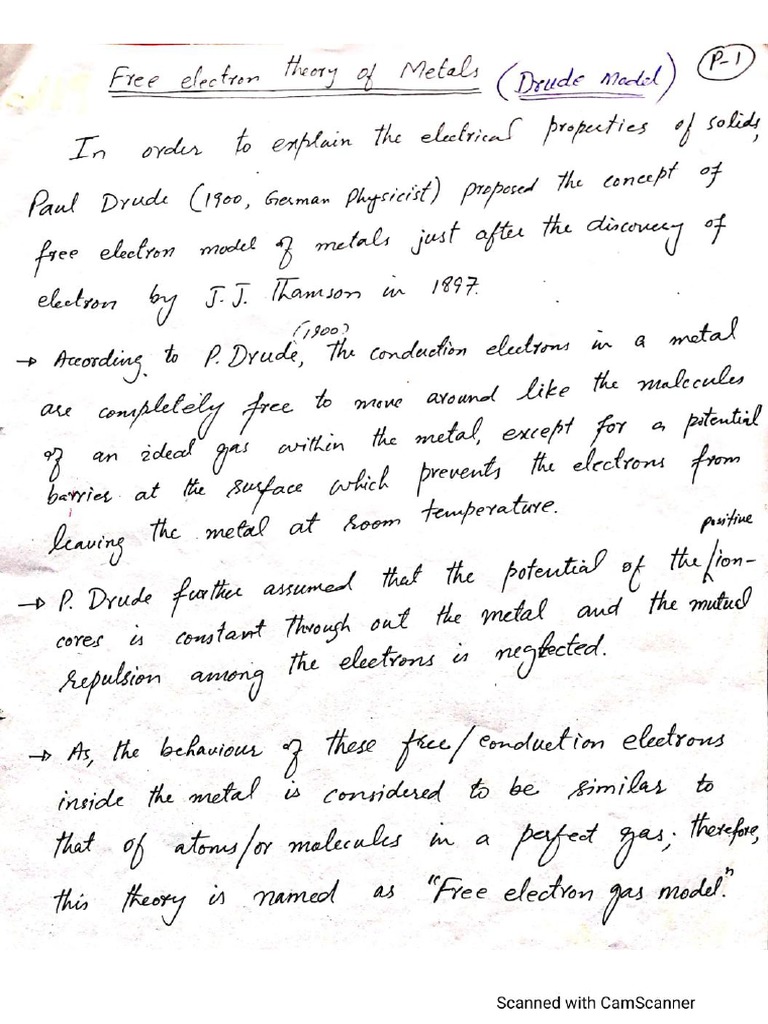 Free electron theory of Metals (Drude Model) P-1
In order to explain the electrical properties of solids,
Paul Drude (1900, German Physicist) proposed the concept of
free electron model of metals just after the discovery of
electron by J.J. Thamson in 1897.
(1900)
→ According to P. Drude, the conduction electrons in a metal
are completely free to move around like the molecules
of an ideal gas within the metal, except for a potential
barrier at the surface which prevents the electrons from
leaving the metal at room temperature.
positive
→ P. Drude further assumed that the potential of the / ion-
cores is constant through out the metal and the mutual
repulsion among the electrons is neglected.
→ As, the behaviour of these free/conduction electrons
inside the metal is considered to be similar to
that of atoms/or molecules in a perfect gas; therefore,
this theory is named as "Free electron gas model."
Scanned with CamScanner